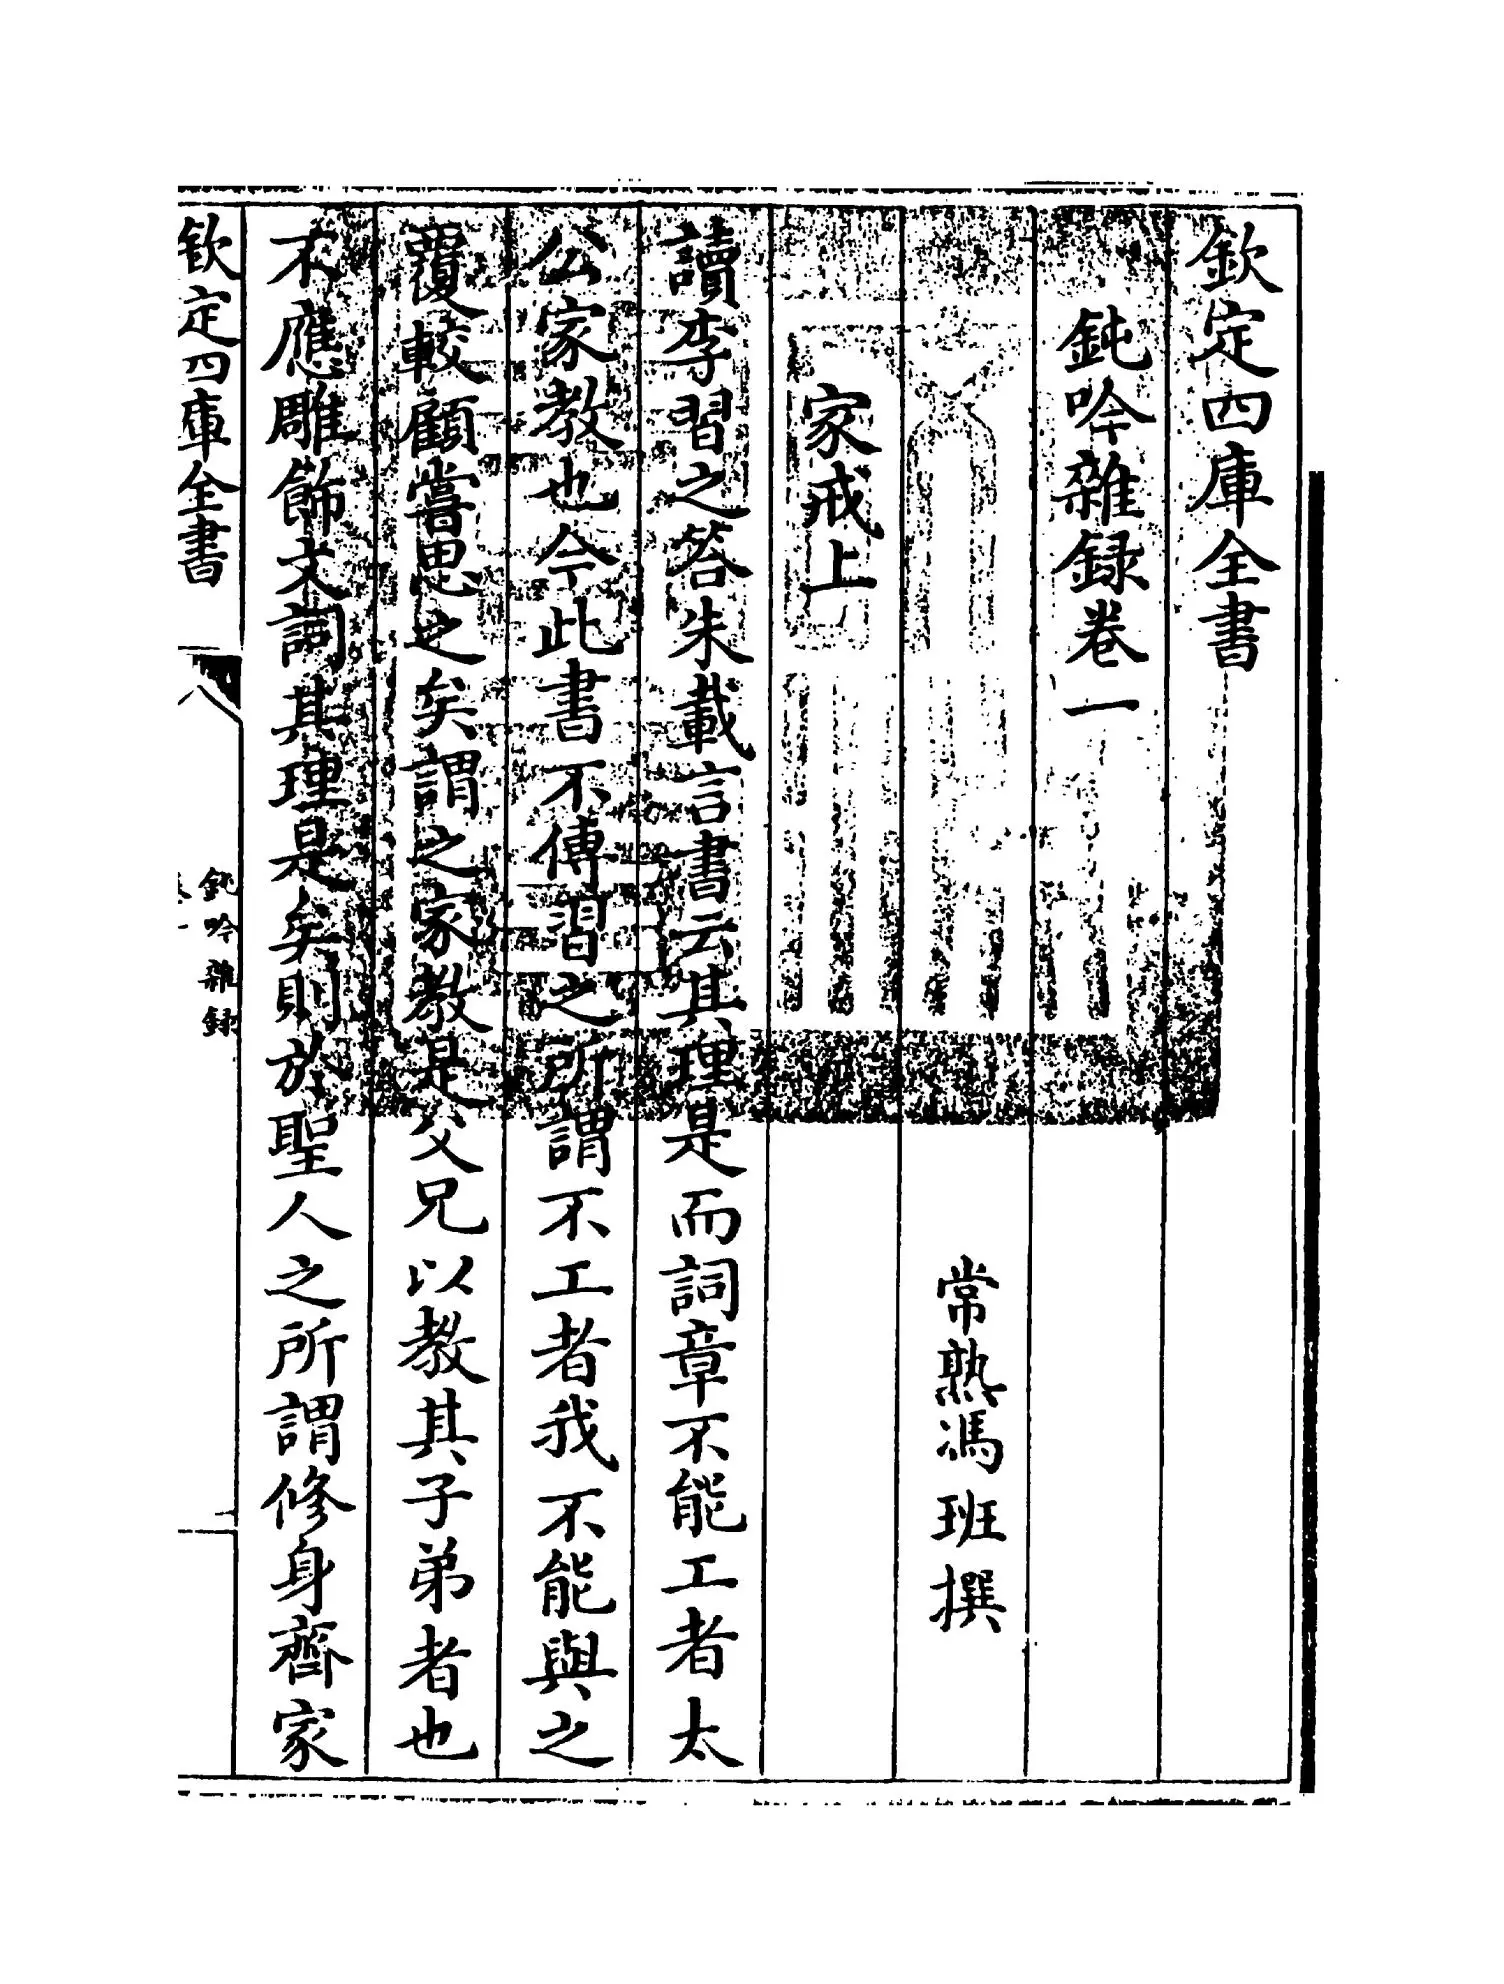 欽定四庫全書
鈍吟雜録卷一
常熟馮班撰
家戒上
讀李習之答朱載言書云其理是而詞章不能工者太
公家教也今此書不傳習之所謂不工者我不能與之
覆較顧嘗思之矣謂之家教是父兄以教其子弟者也
不應雕飾文詞其理是矣則於聖人之所謂修身齊家
欽定四庫全書
鈍吟雜録